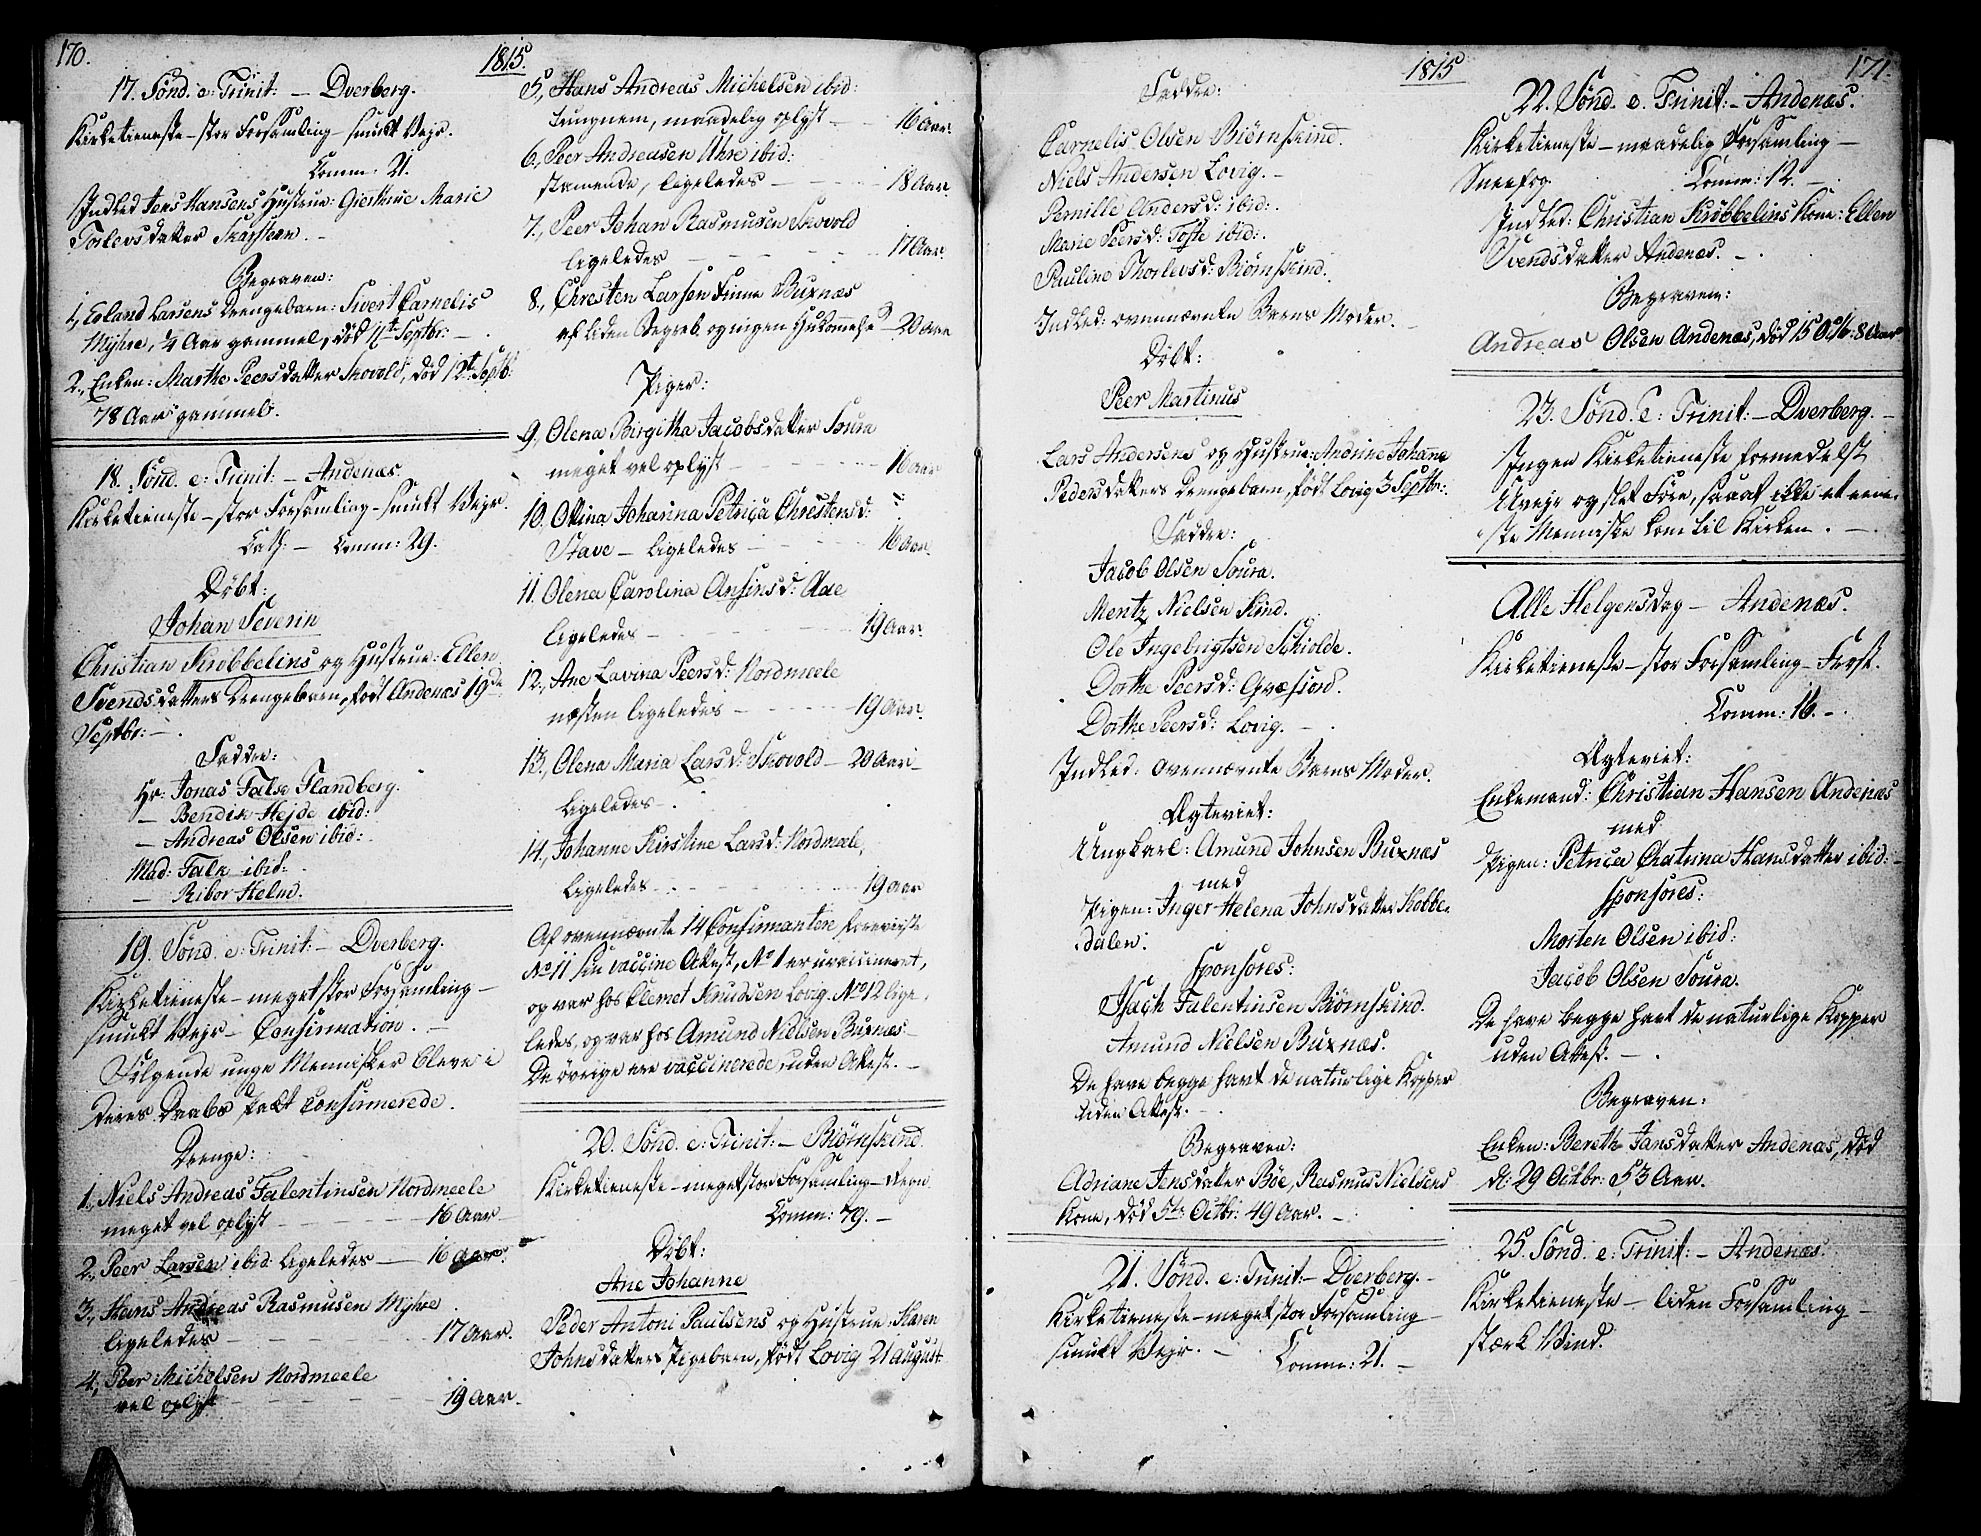 170.
1815.
17. Sönd. e: Trinit: — Dverberg.
Kirketieneste — stor Forsamling — smukt Vejr.
Comm: 21.
Indled Jens Hansens Hustrue: Giertrue Marie
Torlevsdatter Skarsteen. —
Begraven:
1., Erland Larsens Drengebarn: Sivert Cornelis
Myhre, 1/4 Aar gammel, död 11te Septbr: —
2., Enken: Marthe Peersdatter Skovold, död 12te Septb:
78 Aar gammel.
18. Sönd. e: Trinit: — Andenæs
Kirketieneste — stor Forsamling — smukt Vejr.
Cath: — Comm: 29.
Döbt:
Johan Severin
Christian Kröbbelins og Hustrue: Ellen
Svendsdatters Drengebarn, födt Andenæs 19de
Septbr: —
Faddre:
Hr: Jonas False Flandberg.
— Bendix Hejde ibid:
— Andreas Olsen ibid:
Mad: Falk ibid:
— Ribor Helm.
19. Sönd. e: Trinit: — Dverberg.
Kirketieneste — meget stor Forsamling —
smukt Vejr — Confirmation. —
Fölgende unge Mennisker bleve i
deres Daabs Pakt confirmerede.
Drenge:
1., Niels Andreas Falentinsen Nordmeele
meget vel oplyst — 16 Aar
2., Peer Larsen ibid: ligeledes — 16 Aar.
3., Hans Andreas Rasmusen Myhre
ligeledes — 17 Aar.
4., Peer Michelsen Nordmeele
vel oplyst — 19 Aar.
5., Hans Andreas Michelsen ibid:
tungnem, maadelig oplyst — 16 Aar.
6., Peer Andreasen Uhre ibid:
stamende, ligeledes — 18 Aar
7., Peer Johan Rasmusen Skovold
ligeledes — 17 Aar.
8., Christen Larsen Finne Buxnæs
af liden Begreb og ingen Hukommelse — 20 Aar
Piger:
9., Olena Birgitha Jacobsdatter Soura
meget vel oplyst — 16 Aar
10. Olina Johanna Petrica Chrestensd:
Stave — ligeledes — 16 Aar.
11. Olena Carolina Ansinsd: Aae
ligeledes — 19 Aar.
12., Ane Lavina Peersd: Nordmeele
næsten ligeledes — 19 Aar.
13., Olena Maria Larsd: Skovold — 20 Aar —
ligeledes — .
14., Johanne Kirstine Larsd: Nordmeele,
ligeledes — 19 Aar
Af ovennævnte 14 Confirmantere foreviiste
No 11 sin vaccine Attest, No 1 er uvaccineret,
og var hos Clemet Knudsen Lovig. No 12 lige-
ledes, og var hos Amund Nielsen Buxnæs —
De övrige ere vaccinerede uden Attest. —
20. Sönd. e: Trinit: — Biörnskind
Kirketieneste — meget stor Forsamling — Regn
Comm: 79. —
Döbt:
Ane Johanne
Peder Antoni Paulsens og Hustrue: Karen
Johnsdatters Pigebarn, födt Lovig 21 August
1815
171.
Faddre:
Cornelis Olsen Biörnskind.
Niels Andersen Lovig. —
Pernille Andersd: ibid:
Marie Peersd: Tofte ibid:
Pauline Thorlevsd: Biörnskind.
Indled: ovennævnte Barns Moder. —
Döbt:
Peer Martinus
Lars Andersens og Hustrue: Andrine Johanna
Pedersdatters Drengebarn, födt Lovig 3 Septbr:
Faddre:
Jacob Olsen Soura.
Mentz Nielsen Kind.
Ole Ingebrigtsen Schiolde.
Dorthe Peersd: Qvæfiord.
Dorthe Peersd: Lovig. —
Indled: ovennævnte Barns Moder.
Ægteviet:
Ungkarl: Amund Johnsen Buxnæs
med
Pigen: Inger Helena Johnsdatter Kobbe-
dalen.
Sponsores:
Isach Falentinsen Biörnskind.
Amund Nielsen Buxnæs.
De have begge havt de naturlige Kopper
uden Attest. —
Begraven:
Adriane Jensdatter Böe, Rasmus Nielsens
Kone, död 5te Octbr: 49 Aar. —
21. Sönd. e: Trinit: — Dverberg. —
Kirketieneste — meget stor Forsamling —
smukt Vejr. —
Comm: 21. —
22. Sönd. e. Trinit: — Andenæs.
Kirketieneste — maadelig Forsamling —
Sneefog
Comm: 12. —
Indled: Christian Kröbbelins Kone: Ellen
Svendsdatter Andenæs. —
Begraven:
Andreas Olsen Andenæs, död 15 Octb: 8 Aar
23. Sönd. e: Trinit: — Dverberg. —
Ingen Kirketieneste formedelst
Uvejr og slet Före, saaat ikke et eene-
ste Menniske kom til Kirken. —
Alle Helgensdag — Andenæs.
Kirketieneste — stor Forsamling — Frost.
Comm: 16. —
Ægteviet:
Enkemand: Christian Hansen Andenæs
med
Pigen: Petrica Chatrina Hansdatter ibid: —
Sponsores:
Morten Olsen ibid:
Jacob Olsen Soura.
De have begge havt de naturlige Kopper
uden Attest. —
Begraven:
Enken: Bereth Jansdatter Andenæs, död
d: 29 Octbr: 53 Aar.
25. Sönd. e: Trinit: — Andenæs.
Kirketieneste — liden Forsamling —
stærk Vind.